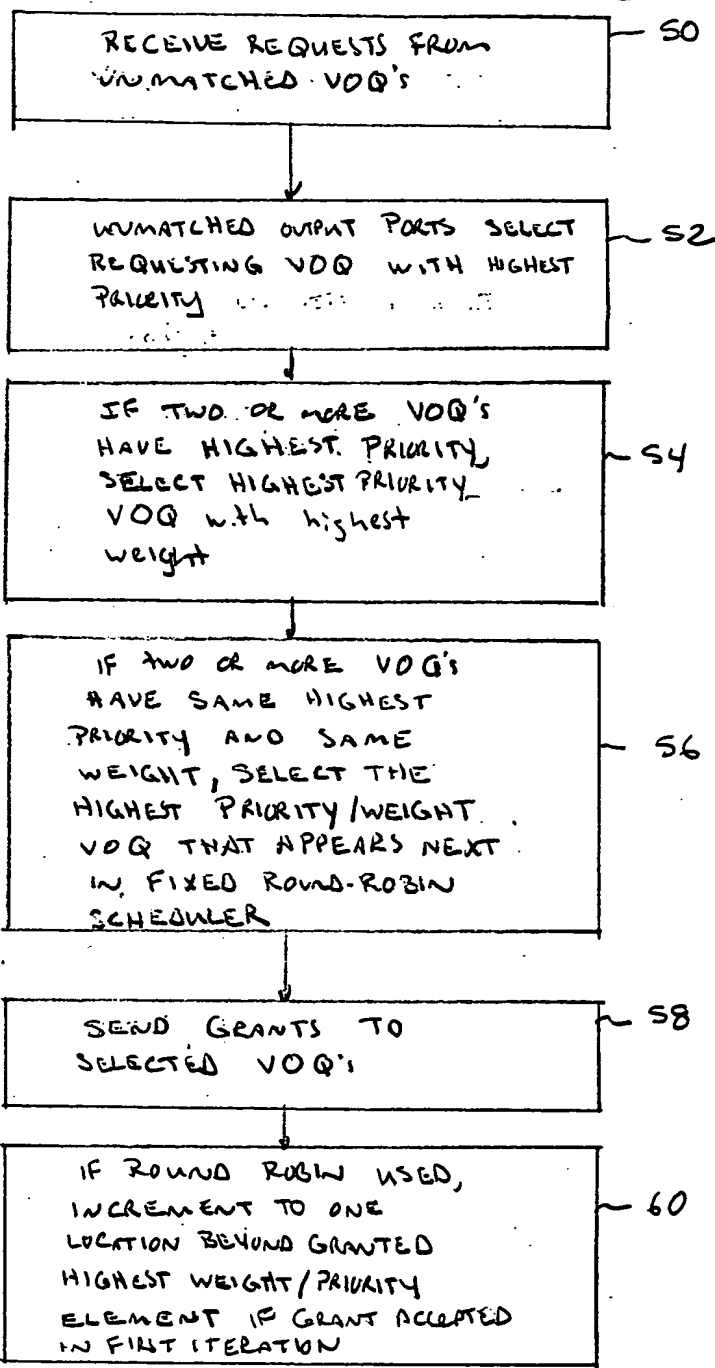 RECEIVE REQUESTS FROM
UNMATCHED VOQ's
50
UNMATCHED OUTPUT PORTS SELECT
REQUESTING VOQ WITH HIGHEST
PRIORITY
52
IF TWO OR MORE VOQ's
HAVE HIGHEST PRIORITY,
SELECT HIGHEST PRIORITY
VOQ with highest
weight
54
IF TWO OR MORE VOQ's
HAVE SAME HIGHEST
PRIORITY AND SAME
WEIGHT, SELECT THE
HIGHEST PRIORITY/WEIGHT
VOQ THAT APPEARS NEXT
IN FIXED ROUND-ROBIN
SCHEDULER
56
SEND GRANTS TO
SELECTED VOQ's
58
IF ROUND ROBIN USED,
INCREMENT TO ONE
LOCATION BEYOND GRANTED
HIGHEST WEIGHT/PRIORITY
ELEMENT IF GRANT ACCEPTED
IN FIRST ITERATION
60